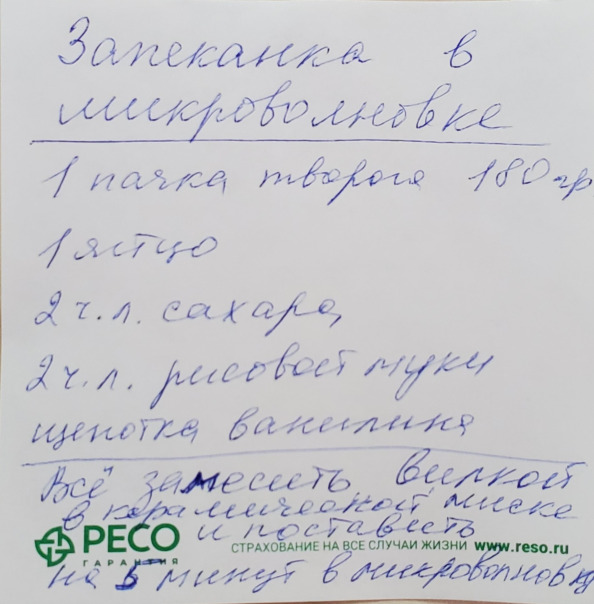 Запеканка в
микроволновке
1 пачка творога 180 гр
1 яйцо
2 ч.л. сахара,
2 ч.л. рисовой муки
щепотка ванилина
Всё замесить вилкой
в керамической миске
и поставить
РЕСО
ГАРАНТИЯ
СТРАХОВАНИЕ НА ВСЕ СЛУЧАИ ЖИЗНИ www.reso.ru
на 5 минут в микроволновку